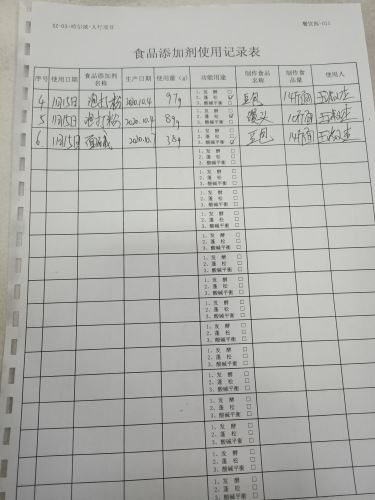 食品添加剂使用记录表
序号 使用日期 食品添加剂名称 生产日期 使用量(g) 功能用途 制作食品名称 制作食品量 使用人
4 11月15日 泡打粉 2020.10.4 97g 1、发酵 □ 2、蓬松 ☑ 3、酸碱平衡 □ 豆包 14斤面
5 11月15日 泡打粉 2020.10.4 89g 1、发酵 □ 2、蓬松 ☑ 3、酸碱平衡 □ 馒头
6 11月15日 2020.10.7 38g 1、发酵 □ 2、蓬松 □ 3、酸碱平衡 豆包 14斤面
1、发酵 □ 2、蓬松 □ 3、酸碱平衡 □
1、发酵 □ 2、蓬松 □ 3、酸碱平衡 □
1、发酵 □ 2、蓬松 □ 3、酸碱平衡 □
1、发酵 □ 2、蓬松 □ 3、酸碱平衡 □
1、发酵 □ 2、蓬松 □ 3、酸碱平衡 □
1、发酵 □ 2、蓬松 □ 3、酸碱平衡 □
1、发酵 □ 2、蓬松 □ 3、酸碱平衡 □
1、发酵 □ 2、蓬松 □ 3、酸碱平衡 □
1、发酵 □ 2、蓬松 □ 3、酸碱平衡 □
1、发酵 □ 2、蓬松 □ 3、酸碱平衡 □
1、发酵 □ 2、蓬松 □ 3、酸碱平衡 □
1、发酵 □ 2、蓬松 □ 3、酸碱平衡 □
1、发酵 □ 2、蓬松 □